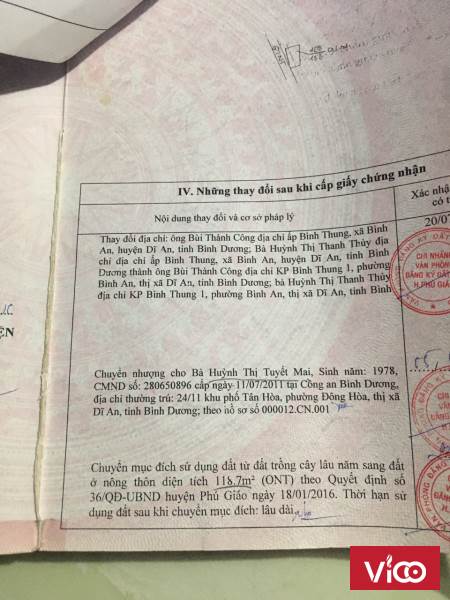 IV. Những thay đổi sau khi cấp giấy chứng nhận
Nội dung thay đổi và cơ sở pháp lý
Xác nhận
có t
Thay đổi địa chỉ: ông Bùi Thành Công địa chỉ ấp Bình Thung, xã Bình
An, huyện Dĩ An, tỉnh Bình Dương; Bà Huỳnh Thị Thanh Thủy địa
chỉ địa chỉ ấp Bình Thung, xã Bình An, huyện Dĩ An, tỉnh Bình
Dương thành ông Bùi Thành Công địa chỉ KP Bình Thung 1, phường
Bình An, thị xã Dĩ An, tỉnh Bình Dương; bà Huỳnh Thị Thanh Thủy
địa chỉ KP Bình Thung 1, phường Bình An, thị xã Dĩ An, tỉnh Bình
20/0
CHI NHÁNH
VĂN PHÒNG
ĐĂNG KÝ ĐẤT
H.PHÚ GIÁO
Chuyển nhượng cho Bà Huỳnh Thị Tuyết Mai, Sinh năm: 1978,
CMND số: 280650896 cấp ngày 11/07/2011 tại Công an Bình Dương,
địa chỉ thường trú: 24/11 khu phố Tân Hòa, phường Đông Hòa, thị xã
Dĩ An, tỉnh Bình Dương; theo hồ sơ số 000012.CN.001
Chuyển mục đích sử dụng đất từ đất trồng cây lâu năm sang đất ở
ở nông thôn diện tích 118.7m² (ONT) theo Quyết định số
36/QĐ-UBND huyện Phú Giáo ngày 18/01/2016. Thời hạn sử
dụng đất sau khi chuyển mục đích: lâu dài
VICO